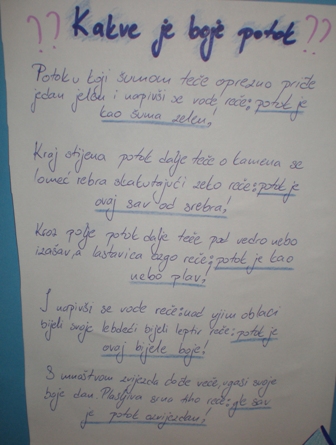 ?? Kakve je boje potok ??
Potoku koji šumom teče oprezno priđe
jedan jelen i napivši se vode reče: potok je
kao šuma zelen!
Kraj stijena potok dalje teče o kamena se
lomeć rebra skakutajući zeko reče: potok je
ovaj sav od srebra!
Kroz polje potok dalje teče pod vedro nebo
izašav, a lastavica brzo reče: potok je kao
nebo plav!
I napivši se vode reče: nad njim oblaci
bijeli svoje lebdeći bijeli leptir reče: potok je
ovaj bijele boje!
S mnoštvom zvijezda dođe veče, ugasi svoje
boje dan. Plašljiva srna tiho reče: gle sav
je potok ozvjezdan!